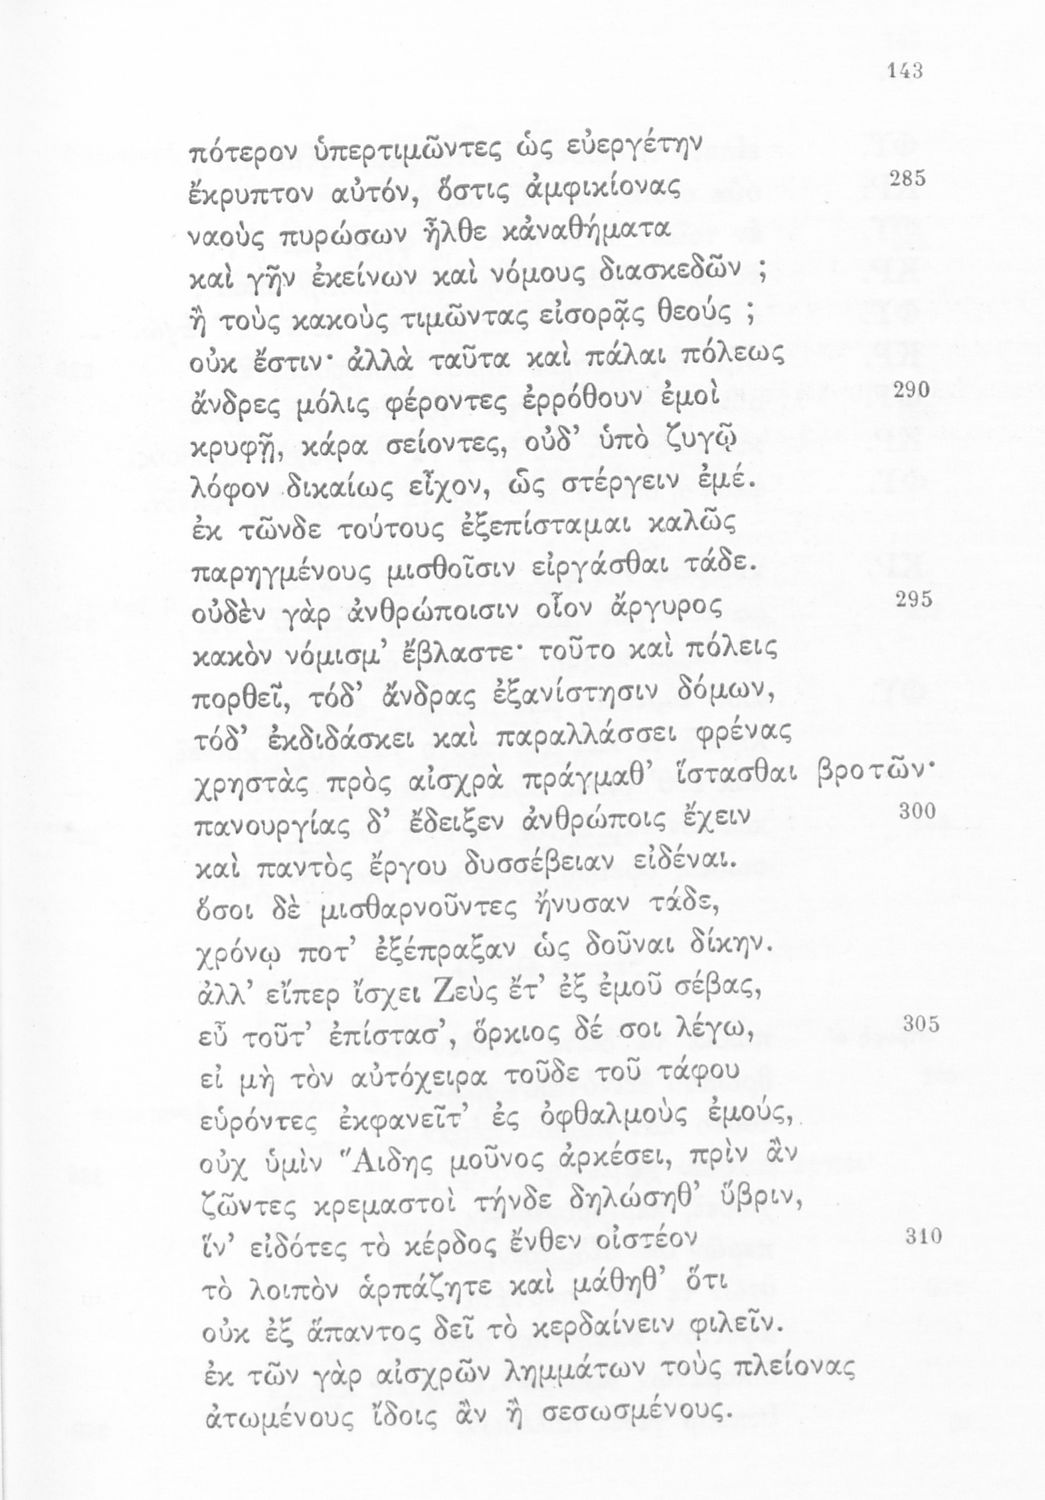 143
πότερον ὑπερτιμῶντες ὡς εὐεργέτην
ἔκρυπτον αὐτόν, ὅστις ἀμφικίονας 285
ναοὺς πυρώσων ἦλθε κἀναθήματα
καὶ γῆν ἐκείνων καὶ νόμους διασκεδῶν ;
ἢ τοὺς κακοὺς τιμῶντας εἰσορᾷς θεούς ;
οὐκ ἔστιν· ἀλλὰ ταῦτα καὶ πάλαι πόλεως
ἄνδρες μόλις φέροντες ἐρρόθουν ἐμοὶ 290
κρυφῇ, κάρα σείοντες, οὐδ’ ὑπὸ ζυγῷ
λόφον δικαίως εἶχον, ὡς στέργειν ἐμέ.
ἐκ τῶνδε τούτους ἐξεπίσταμαι καλῶς
παρηγμένους μισθοῖσιν εἰργάσθαι τάδε.
οὐδὲν γὰρ ἀνθρώποισιν οἷον ἄργυρος 295
κακὸν νόμισμ’ ἔβλαστε· τοῦτο καὶ πόλεις
πορθεῖ, τόδ’ ἄνδρας ἐξανίστησιν δόμων,
τόδ’ ἐκδιδάσκει καὶ παραλλάσσει φρένας
χρηστὰς πρὸς αἰσχρὰ πράγμαθ’ ἵστασθαι βροτῶν·
πανουργίας δ’ ἔδειξεν ἀνθρώποις ἔχειν 300
καὶ παντὸς ἔργου δυσσέβειαν εἰδέναι.
ὅσοι δὲ μισθαρνοῦντες ἤνυσαν τάδε,
χρόνῳ ποτ’ ἐξέπραξαν ὡς δοῦναι δίκην.
ἀλλ’ εἴπερ ἴσχει Ζεὺς ἔτ’ ἐξ ἐμοῦ σέβας,
εὖ τοῦτ’ ἐπίστασ’, ὅρκιος δέ σοι λέγω, 305
εἰ μὴ τὸν αὐτόχειρα τοῦδε τοῦ τάφου
εὑρόντες ἐκφανεῖτ’ ἐς ὀφθαλμοὺς ἐμούς,
οὐχ ὑμὶν Ἅιδης μοῦνος ἀρκέσει, πρὶν ἂν
ζῶντες κρεμαστοὶ τήνδε δηλώσηθ’ ὕβριν,
ἵν’ εἰδότες τὸ κέρδος ἔνθεν οἰστέον 310
τὸ λοιπὸν ἁρπάζητε καὶ μάθηθ’ ὅτι
οὐκ ἐξ ἅπαντος δεῖ τὸ κερδαίνειν φιλεῖν.
ἐκ τῶν γὰρ αἰσχρῶν λημμάτων τοὺς πλείονας
ἀτωμένους ἴδοις ἂν ἢ σεσωσμένους.